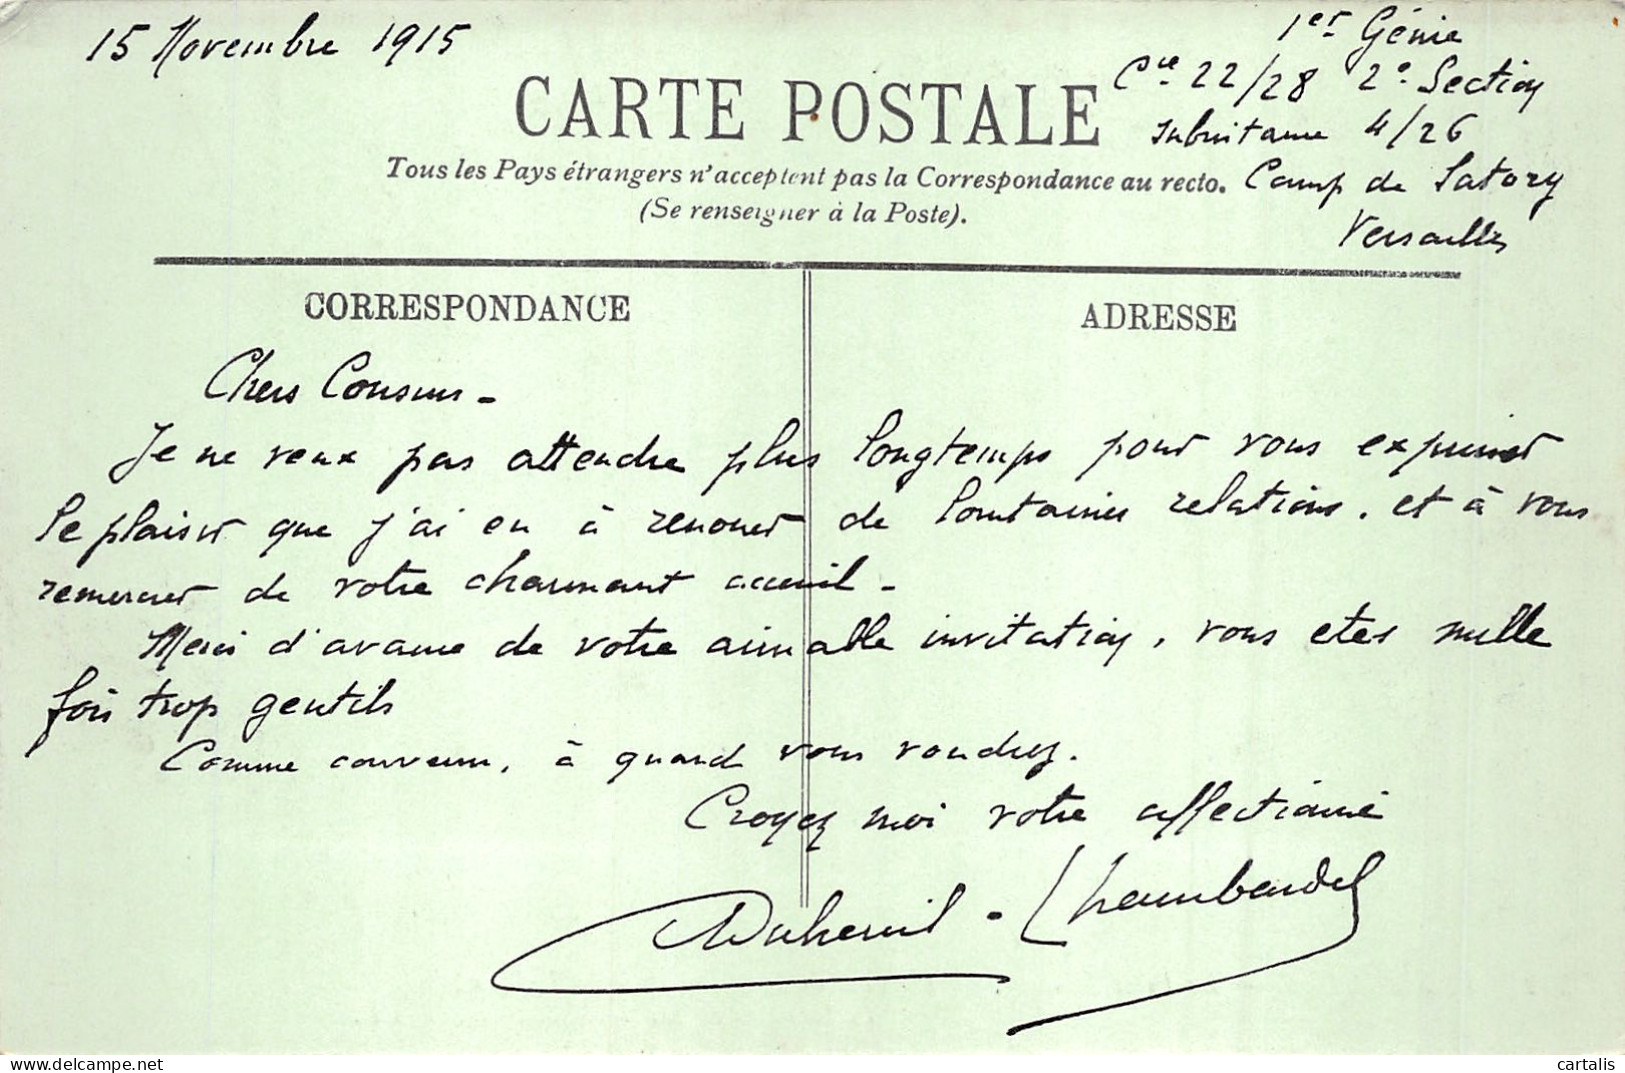 15 Novembre 1915
1er Génie
Cie 22/28 2e Section
Subsistance 4/26
Camp de Satory
Versailles
CARTE POSTALE
Tous les Pays étrangers n'acceptent pas la Correspondance au recto.
(Se renseigner à la Poste).
CORRESPONDANCE
ADRESSE
Chers Cousins -
Je ne veux pas attendre plus longtemps pour vous exprimer
le plaisir que j'ai eu à renouer de lointaines relations, et à vous
remercier de votre charmant accueil -
Merci d'avance de votre aimable invitation, vous etes mille
fois trop gentils
Comme convenu, à quand vous voudrez.
Croyez moi votre affectionné
cartalis